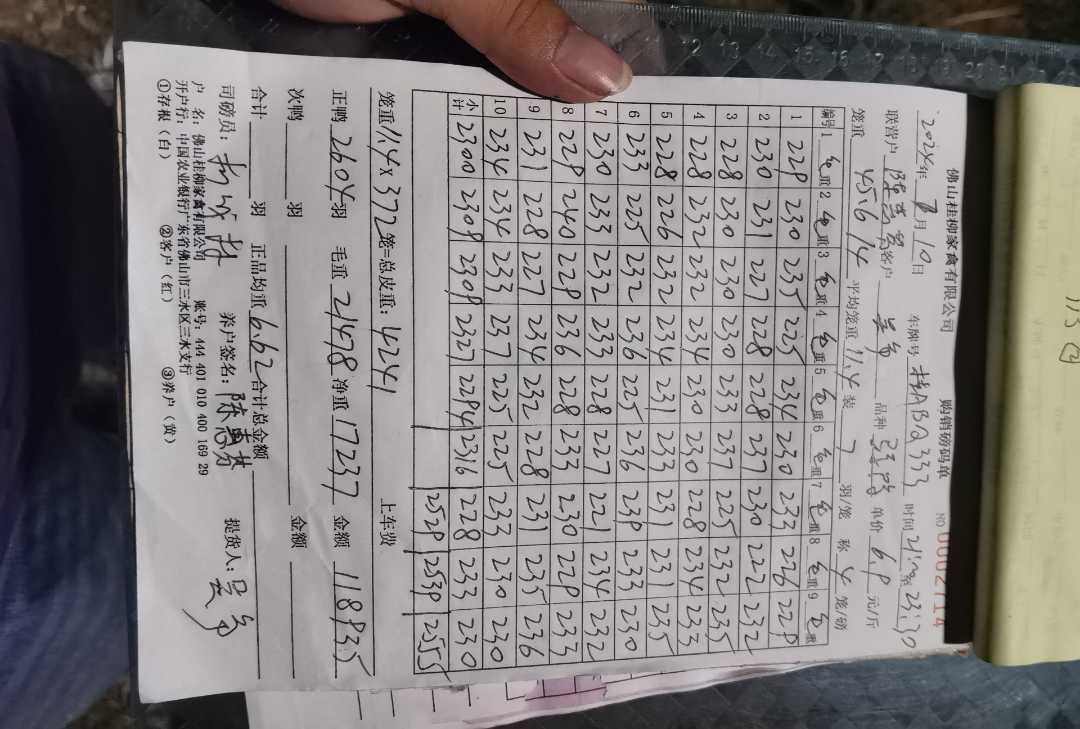 佛山桂柳家禽有限公司 购销磅码单 NO 0002714
2024年 月10日 车牌号 BQ333 时间 至23:30
联营户 陈惠芳 客户 吴 品种 单价 6.9 元/斤
笼重 45.6/4 平均笼重 11.4 装 7 羽/笼 称 4 笼/磅
编号 1 毛重 2 毛重 3 毛重 4 毛重 5 毛重 6 毛重 7 毛重 8 毛重 9 毛重
1 229 230 235 225 234 230 233 226 229
2 230 231 227 228 228 237 230 222 232
3 228 230 230 230 233 237 225 232 235
4 228 232 232 234 230 230 228 234 233
5 228 226 232 234 231 233 231 231 235
6 233 225 232 236 225 236 239 233 230
7 230 233 232 233 228 227 221 234 232
8 229 240 229 236 228 233 230 229 233
9 231 228 227 234 232 228 231 235 236
10 234 234 233 237 225 225 233 230 230
小计 2300 2309 2309 2327 2294 2316 228 233 230
2529 2539 2555
笼重 11.4 x 372 笼=总皮重: 4241 上车费
正鸭 2604 羽 毛重 21478 净重 17237 金额 118935
次鸭 羽 金额
合计 羽 正品均重 6.62 合计总金额
司磅员: 养户签名: 陈惠芳 提货人: 吴
户 名: 佛山桂柳家禽有限公司 账号: 444 401 010 400 169 29
开户行: 中国农业银行广东省佛山市三水区三水支行
①存根(白) ②客户(红) ③养户(黄)